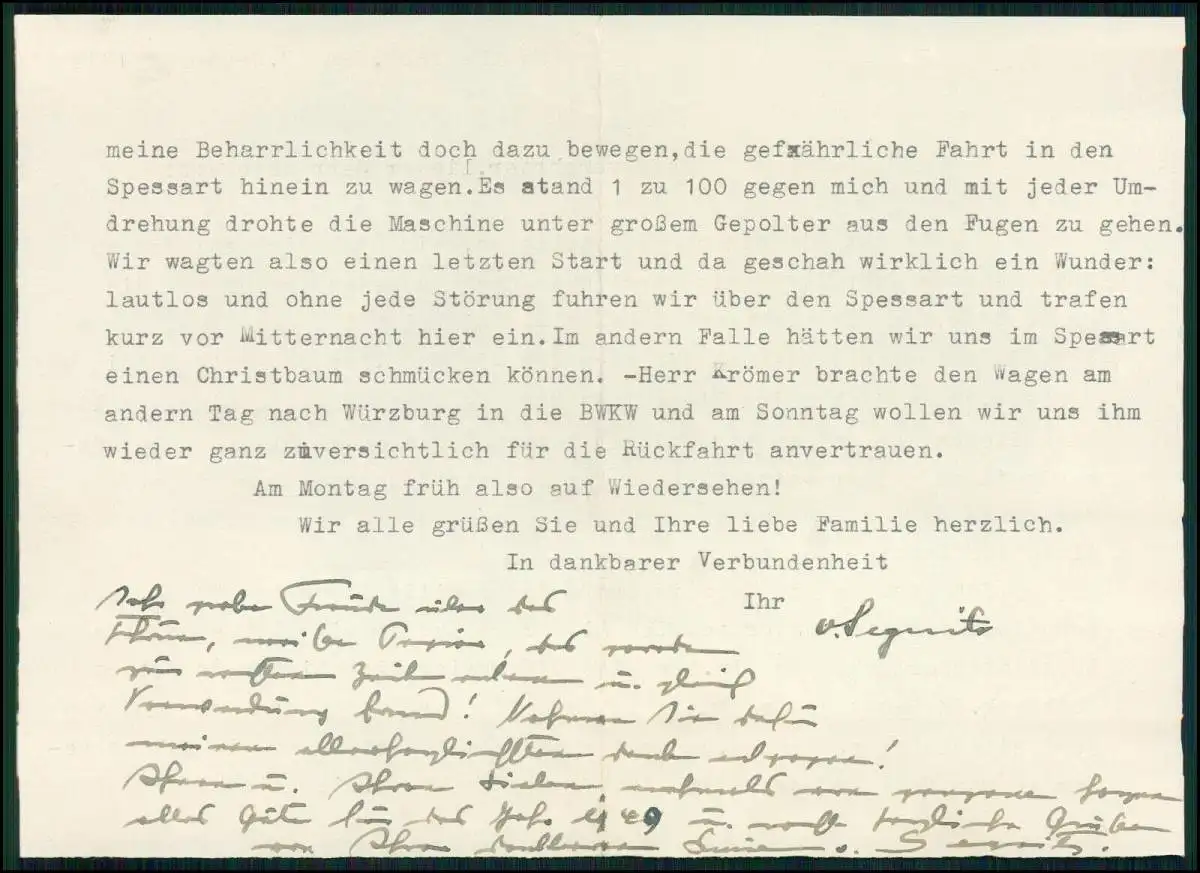 meine Beharrlichkeit doch dazu bewegen,die gefährliche Fahrt in den
Spessart hinein zu wagen.Es stand 1 zu 100 gegen mich und mit jeder Um-
drehung drohte die Maschine unter großem Gepolter aus den Fugen zu gehen.
Wir wagten also einen letzten Start und da geschah wirklich ein Wunder:
lautlos und ohne jede Störung fuhren wir über den Spessart und trafen
kurz vor Mitternacht hier ein.Im andern Falle hätten wir uns im Spessart
einen Christbaum schmücken können. -Herr Krömer brachte den Wagen am
andern Tag nach Würzburg in die BWKW und am Sonntag wollen wir uns ihm
wieder ganz zuversichtlich für die Rückfahrt anvertrauen.
Am Montag früh also auf Wiedersehen!
Wir alle grüßen Sie und Ihre liebe Familie herzlich.
In dankbarer Verbundenheit
Ihr v. Segnitz
Freude über das
schöne, weiße Papier, das
zum ersten Zeilen u. gleich
Verwendung fand! Nehmen Sie dafür
meinen allerherzlichsten Dank entgegen!
Ihnen u. Ihren Lieben nochmals von ganzem Herzen
alles Gute für das Jahr 1949 u. recht herzliche Grüße
von Ihrer dankbaren v. Segnitz.